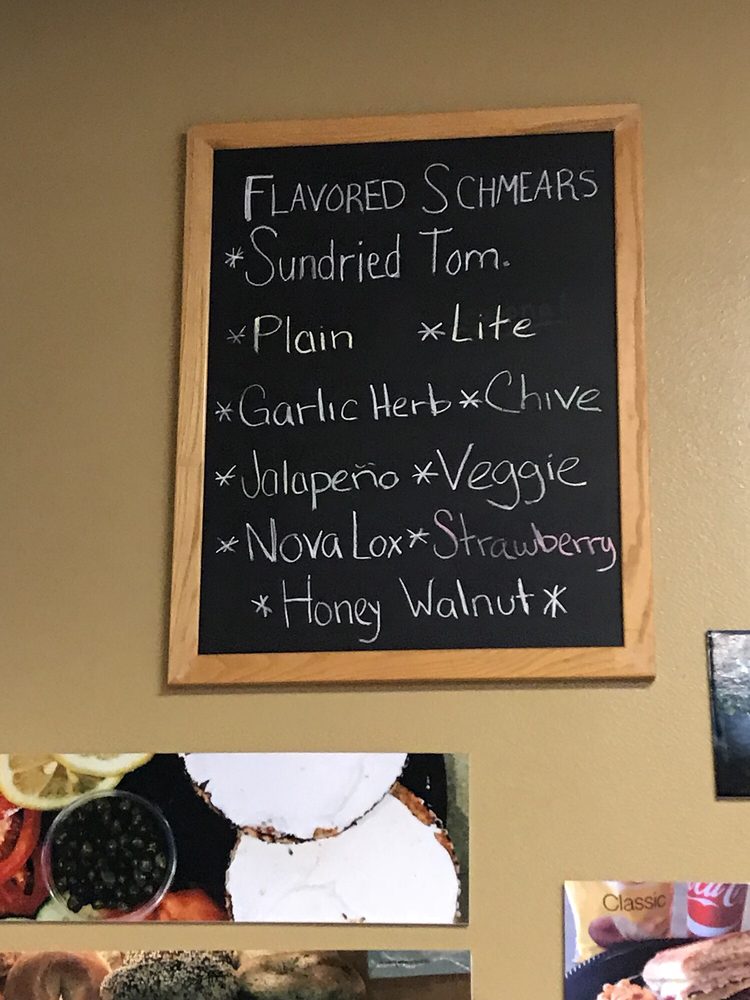 FLAVORED SCHMEARS
*Sundried Tom.
*Plain *Lite
*Garlic Herb *Chive
*Jalapeño *Veggie
*Nova Lox *Strawberry
*Honey Walnut*
Classic